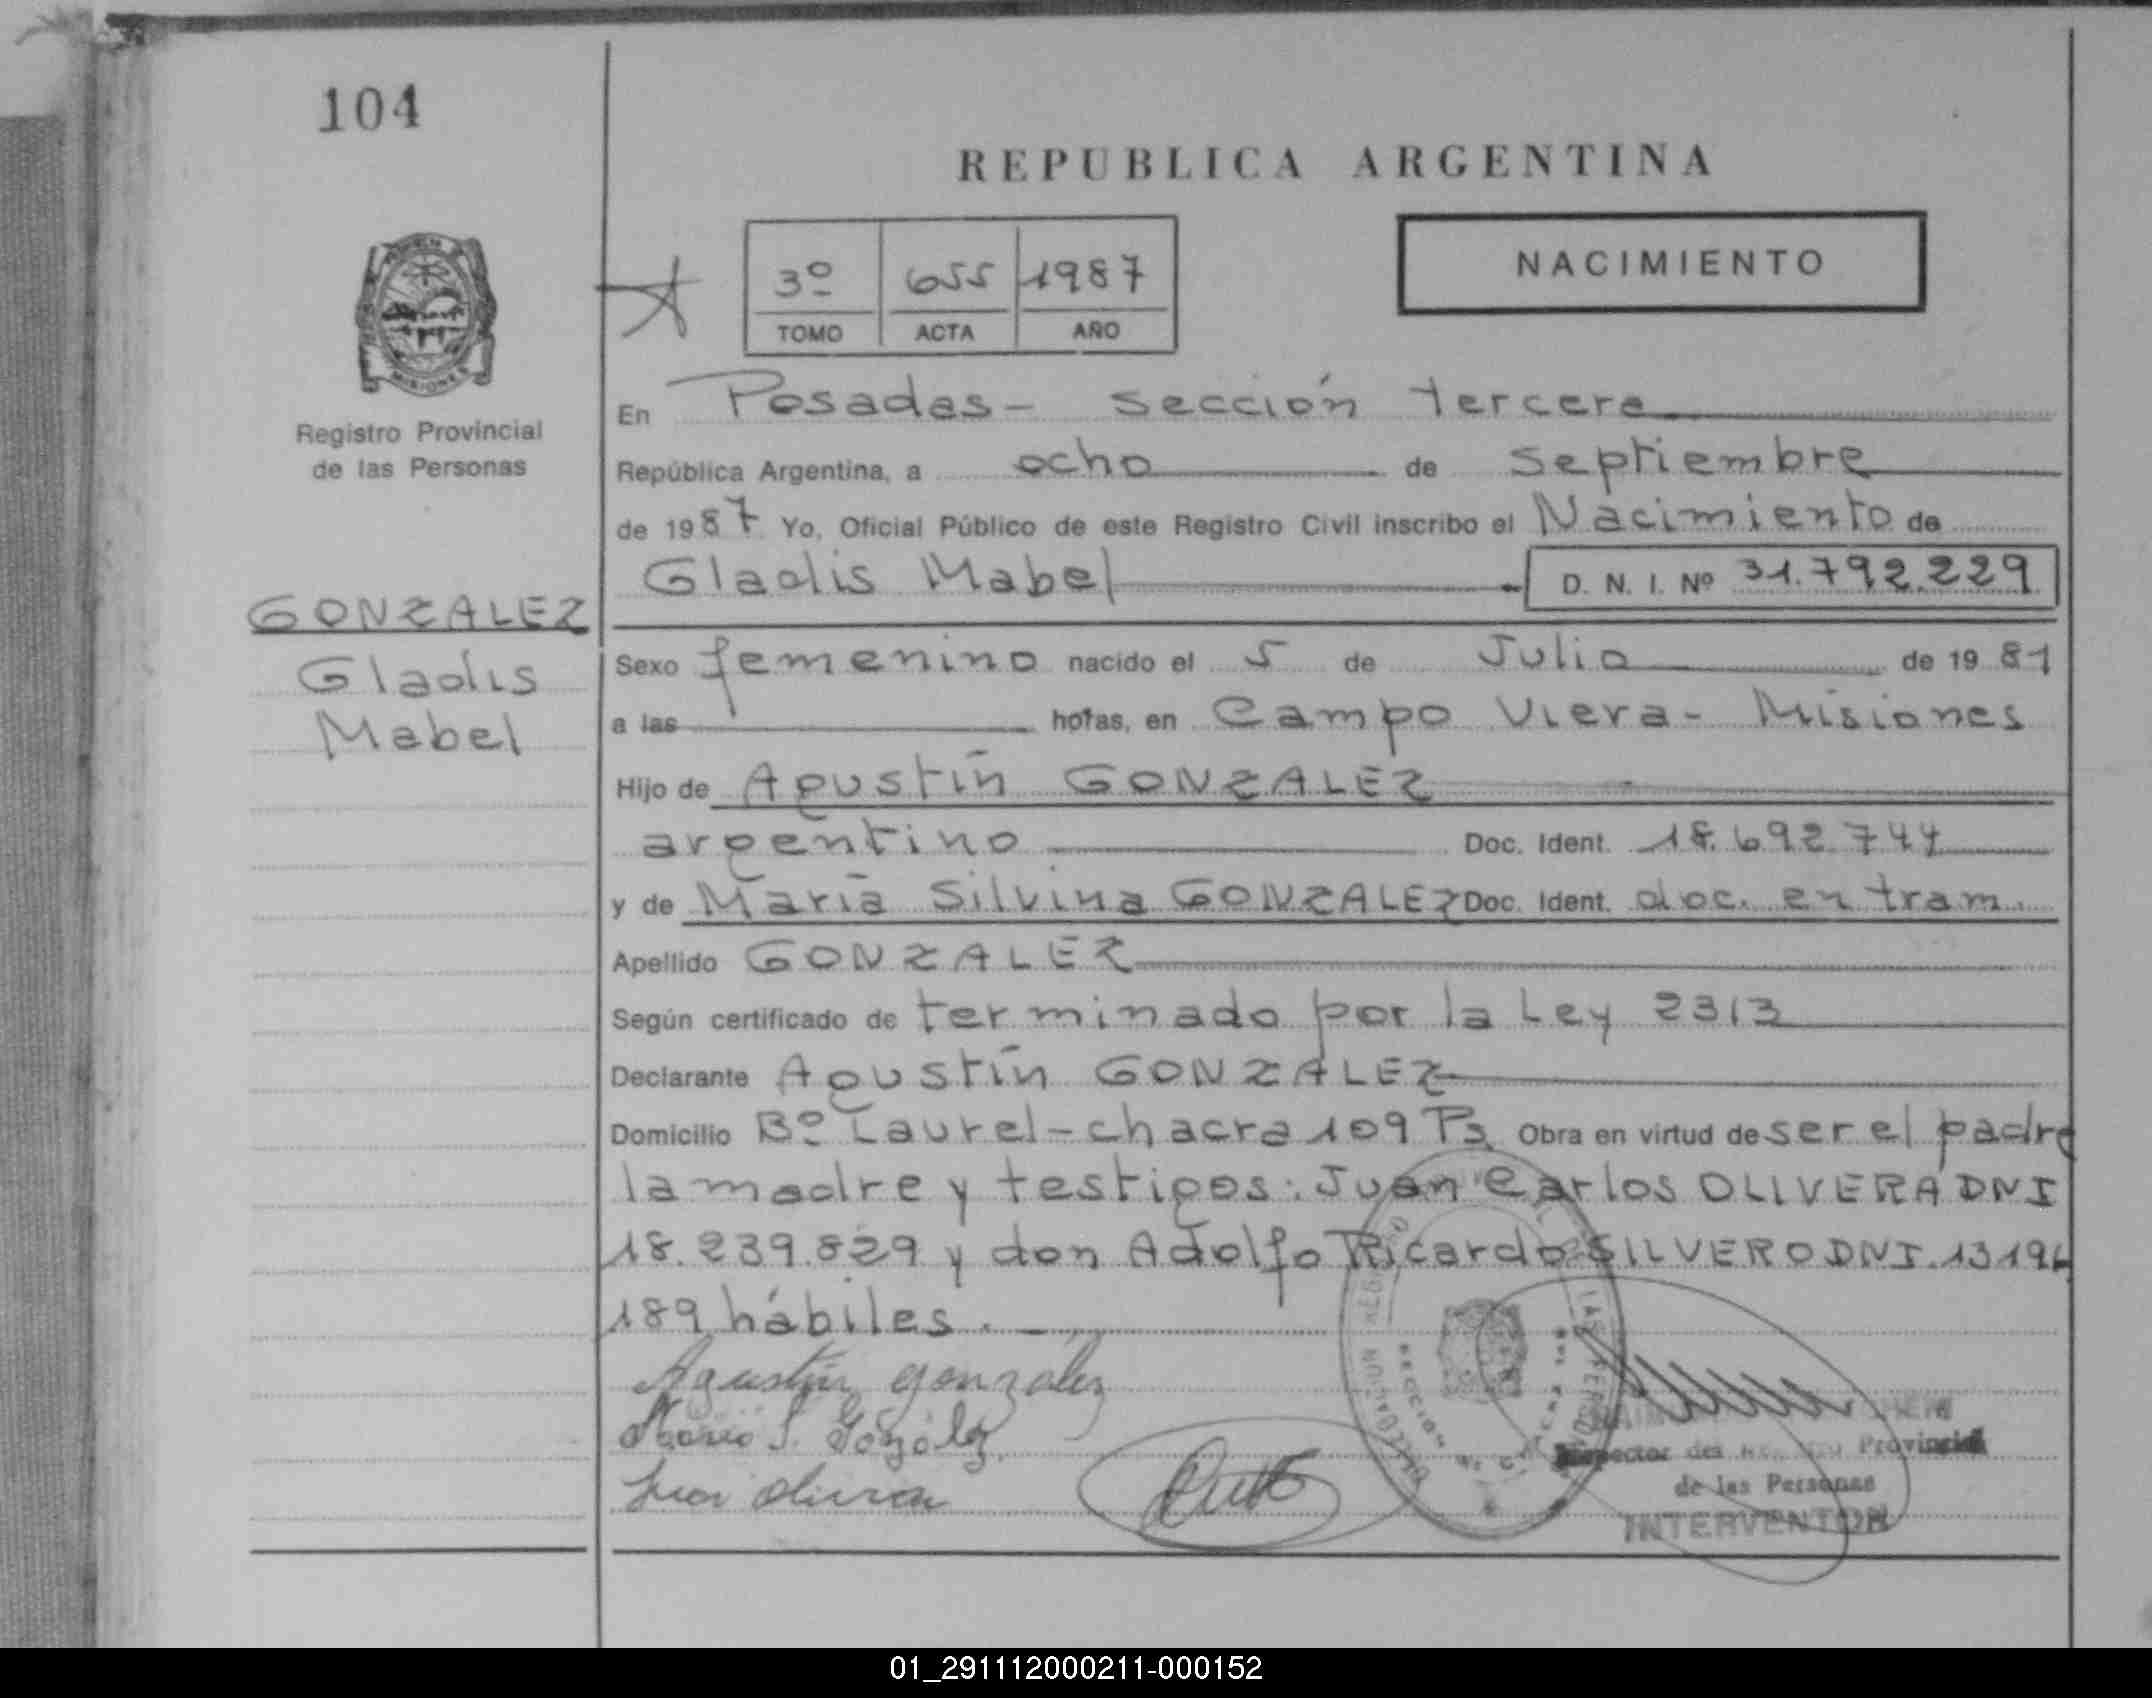 104
REPUBLICA ARGENTINA
NACIMIENTO
3º 655 1987
TOMO ACTA AÑO
MISIONES
Registro Provincial
de las Personas
En Posadas - sección tercera
República Argentina, a ocho de septiembre
de 1987 Yo, Oficial Público de este Registro Civil inscribo el Nacimiento de
Gladis Mabel D. N. I. Nº 31.792.229
GONZALEZ
Gladis
Mabel
Sexo femenino nacido el 5 de Julio de 1981
a las horas, en Campo Viera - Misiones
Hijo de Agustín GONZALEZ
argentino Doc. Ident. 18.692.744
y de María Silvina GONZALEZ Doc. Ident. doc. en tram.
Apellido GONZALEZ
Según certificado de terminado por la Ley 2313
Declarante Agustín GONZALEZ
Domicilio Bº Laurel - chacra 109 Ps. Obra en virtud de ser el padre
la madre y testigos: Juan Carlos OLIVERA DNI
18.239.829 y don Adolfo Ricardo SILVERO DNI. 13196
189 hábiles.
Agustín gonzález
María S. González
Juan Olivera
Provincial
de las Personas
INTERVENTOR
01_291112000211-000152